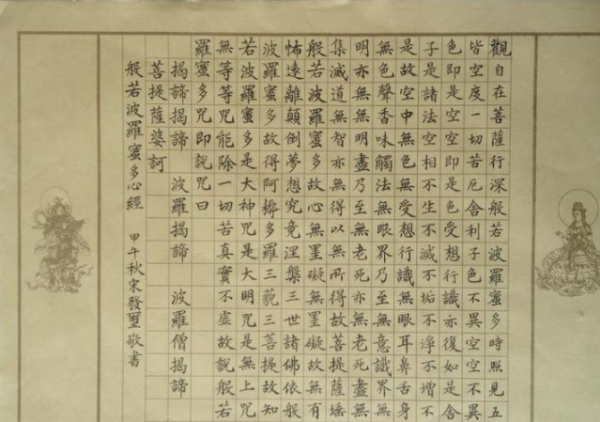 觀自在菩薩行深般若波羅蜜多時照見五
皆空度一切苦厄舍利子色不異空空不異
色即是空空即是色受想行識亦復如是舍
子是諸法空相不生不滅不垢不淨不增不
是故空中無色無受想行識無眼耳鼻舌身
無色聲香味觸法無眼界乃至無意識界無
明亦無無明盡乃至無老死亦無老死盡無
集滅道無智亦無得以無所得故菩提薩埵
般若波羅蜜多故心無罣礙無罣礙故無有
怖遠離顛倒夢想究竟涅槃三世諸佛依般
波羅蜜多故得阿耨多羅三藐三菩提故知
若波羅蜜多是大神咒是大明咒是無上咒
無等等咒能除一切苦真實不虛故說般若
羅蜜多咒即說咒曰
揭諦揭諦 波羅揭諦 波羅僧揭諦
菩提薩婆訶
般若波羅蜜多心經 甲午秋宋發璽敬書